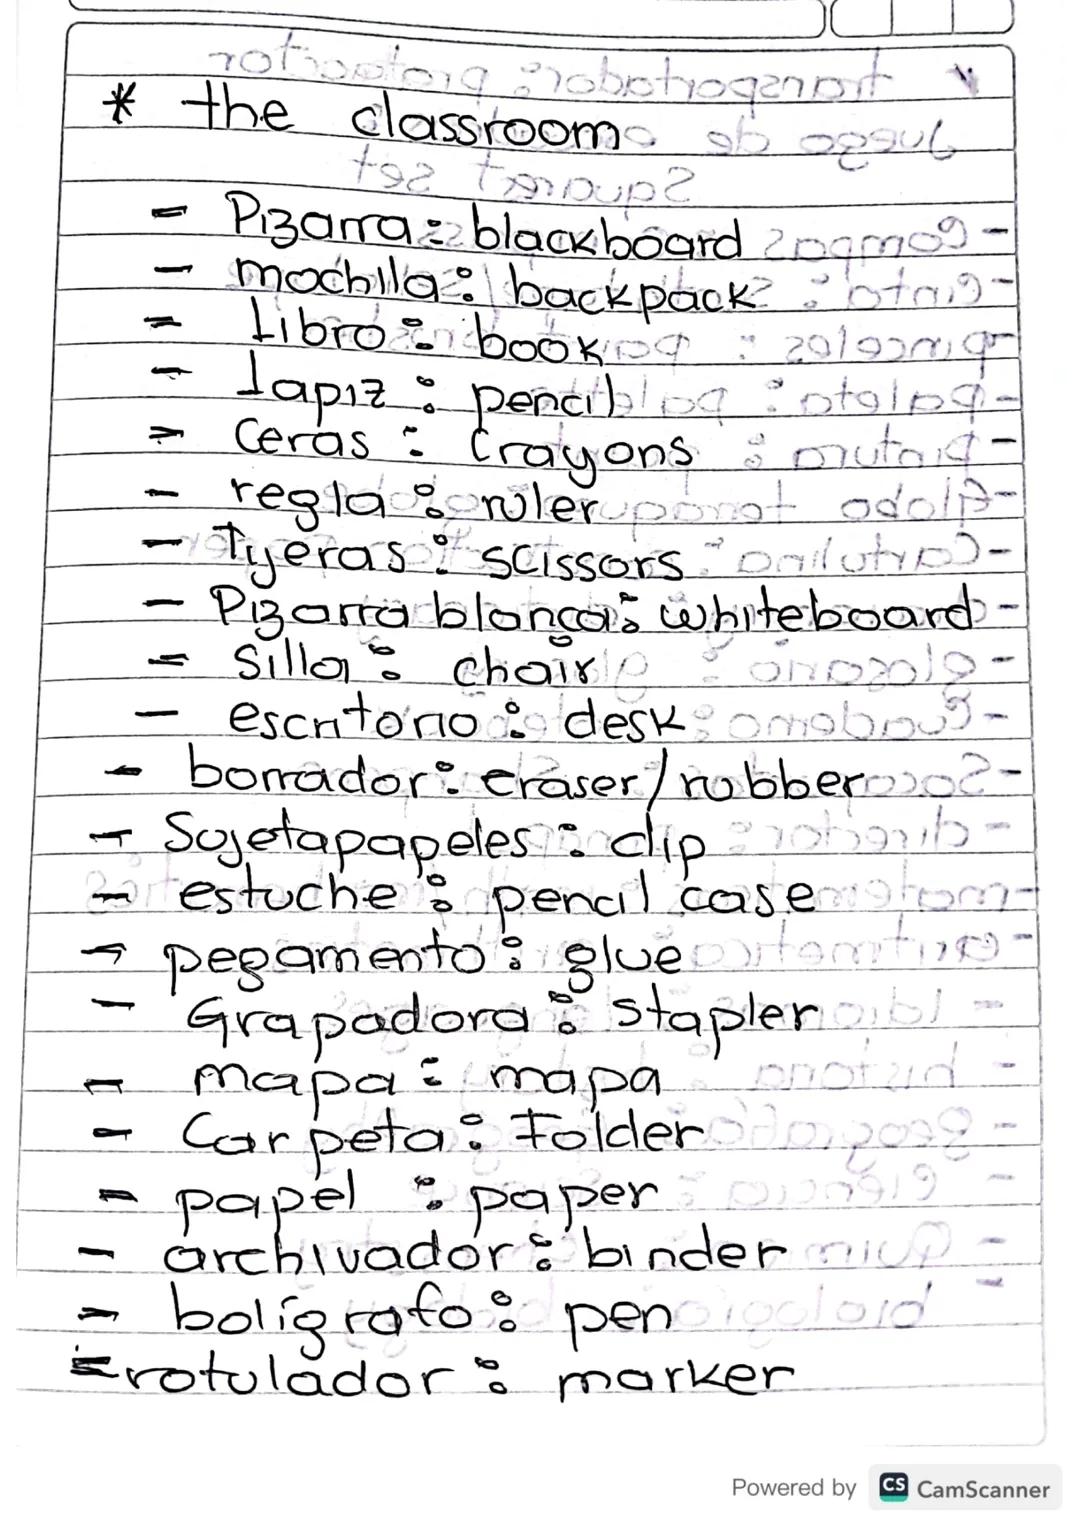 * the classroom
- Pizarra: blackboard
- mochila: backpack
- Libro: book
- Lapiz: pencil
- Ceras: Crayons
- regla: ruler
- Tijeras: scissors
- Pizarra blanca: whiteboard
- Silla: chair
- escritorio: desk
- borrador: eraser/rubber
- Sujetapapeles: clip
- estuche: pencil case
- pegamento: glue
- Grapadora: stapler
- mapa: mapa
- Carpeta: Folder
- papel: paper
- archivador: binder
- bolígrafo: pen
- rotulador: marker
Powered by CS CamScanner